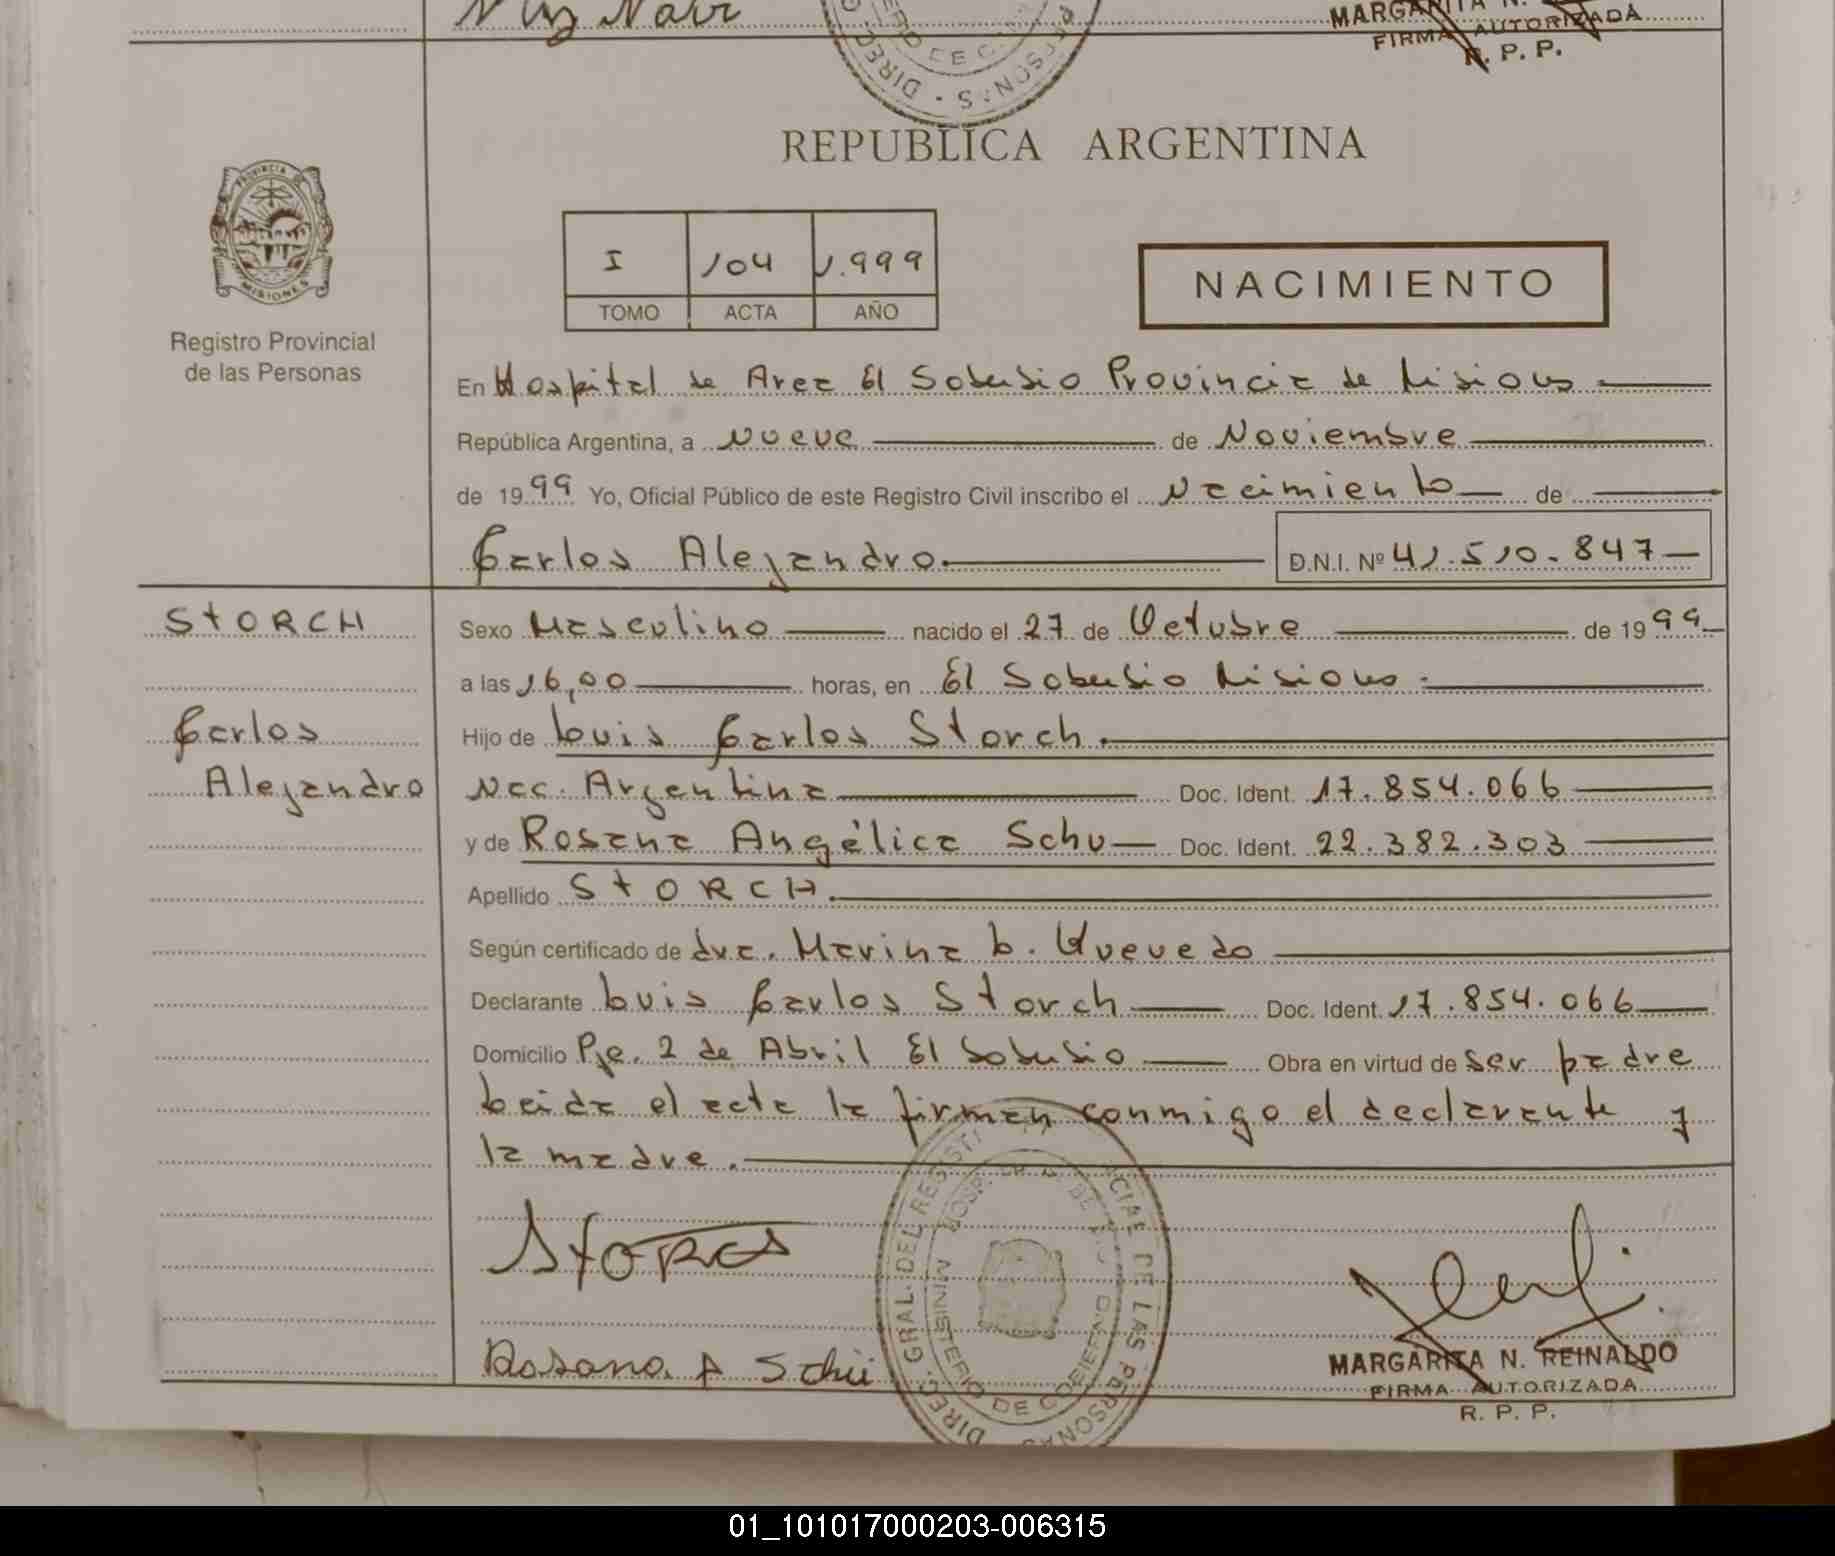 MARGARITA N.
FIRMA AUTORIZADA
R. P. P.
REPUBLICA ARGENTINA
PROVINCIA DE
MISIONES
I 104 1.999
TOMO ACTA AÑO
NACIMIENTO
Registro Provincial
de las Personas
En Hospital de Area El Soberbio Provincia de Misiones
República Argentina, a nueve de Noviembre
de 1999 Yo, Oficial Público de este Registro Civil inscribo el Nacimiento de
Carlos Alejandro. D.N.I. Nº 41.510.847
STORCH
Carlos
Alejandro
Sexo Masculino nacido el 27 de Octubre de 1999
a las 16,00 horas, en El Soberbio Misiones.
Hijo de Luis Carlos Storch.
Nac. Argentina Doc. Ident. 17.854.066
y de Rosana Angélica Schu Doc. Ident. 22.382.303
Apellido STORCH.
Según certificado de dra. Marina L. Quevedo
Declarante Luis Carlos Storch Doc. Ident. 17.854.066
Domicilio Pje. 2 de Abril El Soberbio Obra en virtud de ser padre
Leida el acta la firman conmigo el declarante y
la madre.
Storch
Rosana A Schü
DIREC. GRAL. DEL REGISTRO PROVINCIAL DE LAS PERSONAS
MINISTERIO DE GOBIERNO
MARGARITA N. REINALDO
FIRMA AUTORIZADA
R. P. P.
01_101017000203-006315